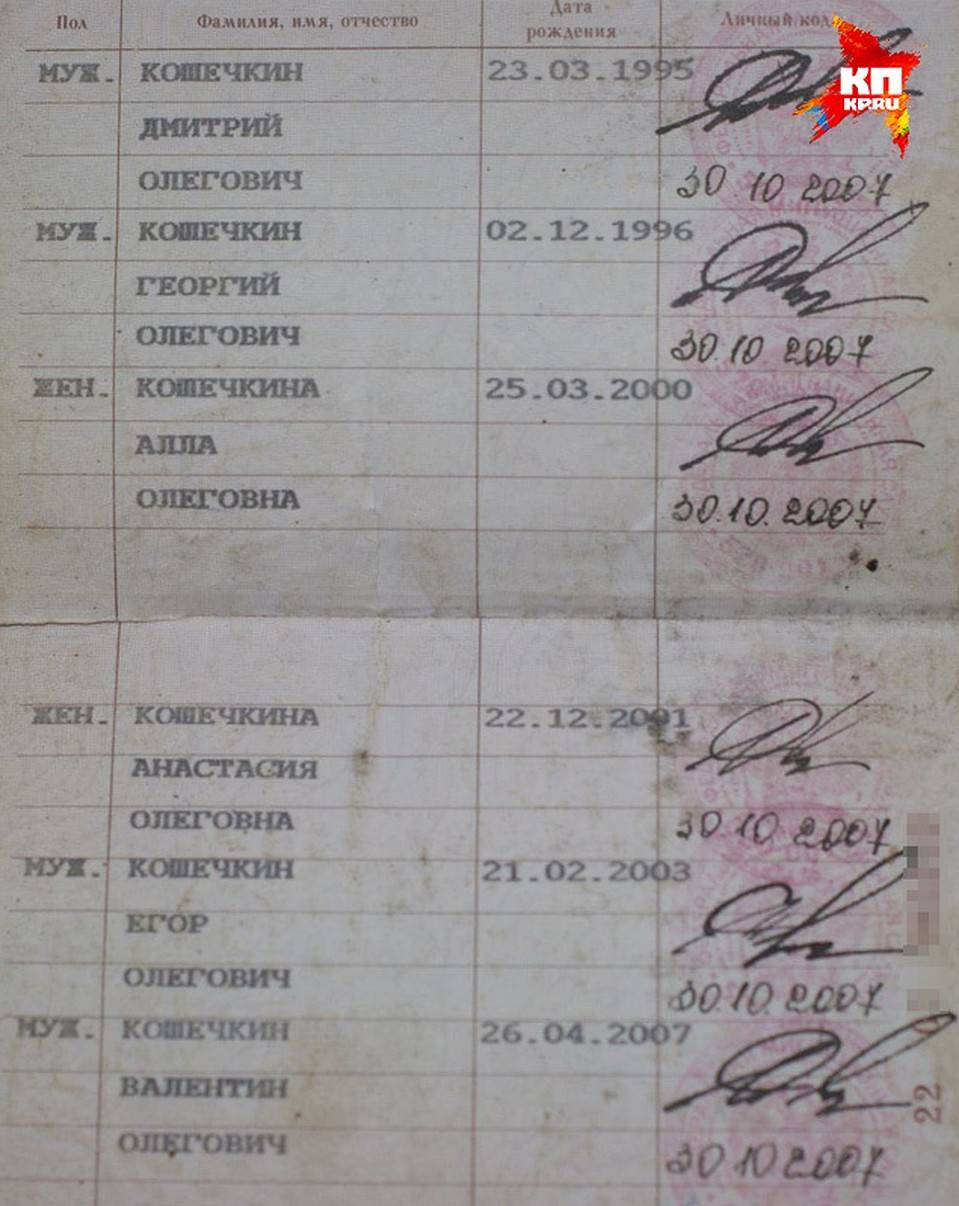 Пол Фамилия, имя, отчество Дата рождения Личный код
КП
KP.RU
МУЖ. КОШЕЧКИН 23.03.1995
ДМИТРИЙ
ОЛЕГОВИЧ 30 10 2007
МУЖ. КОШЕЧКИН 02.12.1996
ГЕОРГИЙ
ОЛЕГОВИЧ 30.10 2007
ЖЕН. КОШЕЧКИНА 25.03.2000
АЛЛА
ОЛЕГОВНА 30.10.2007
ЖЕН. КОШЕЧКИНА 22.12.2001
АНАСТАСИЯ
ОЛЕГОВНА 30 10 2007
МУЖ. КОШЕЧКИН 21.02.2003
ЕГОР
ОЛЕГОВИЧ 30.10.2007
МУЖ. КОШЕЧКИН 26.04.2007
ВАЛЕНТИН
ОЛЕГОВИЧ 30 10 2007
22